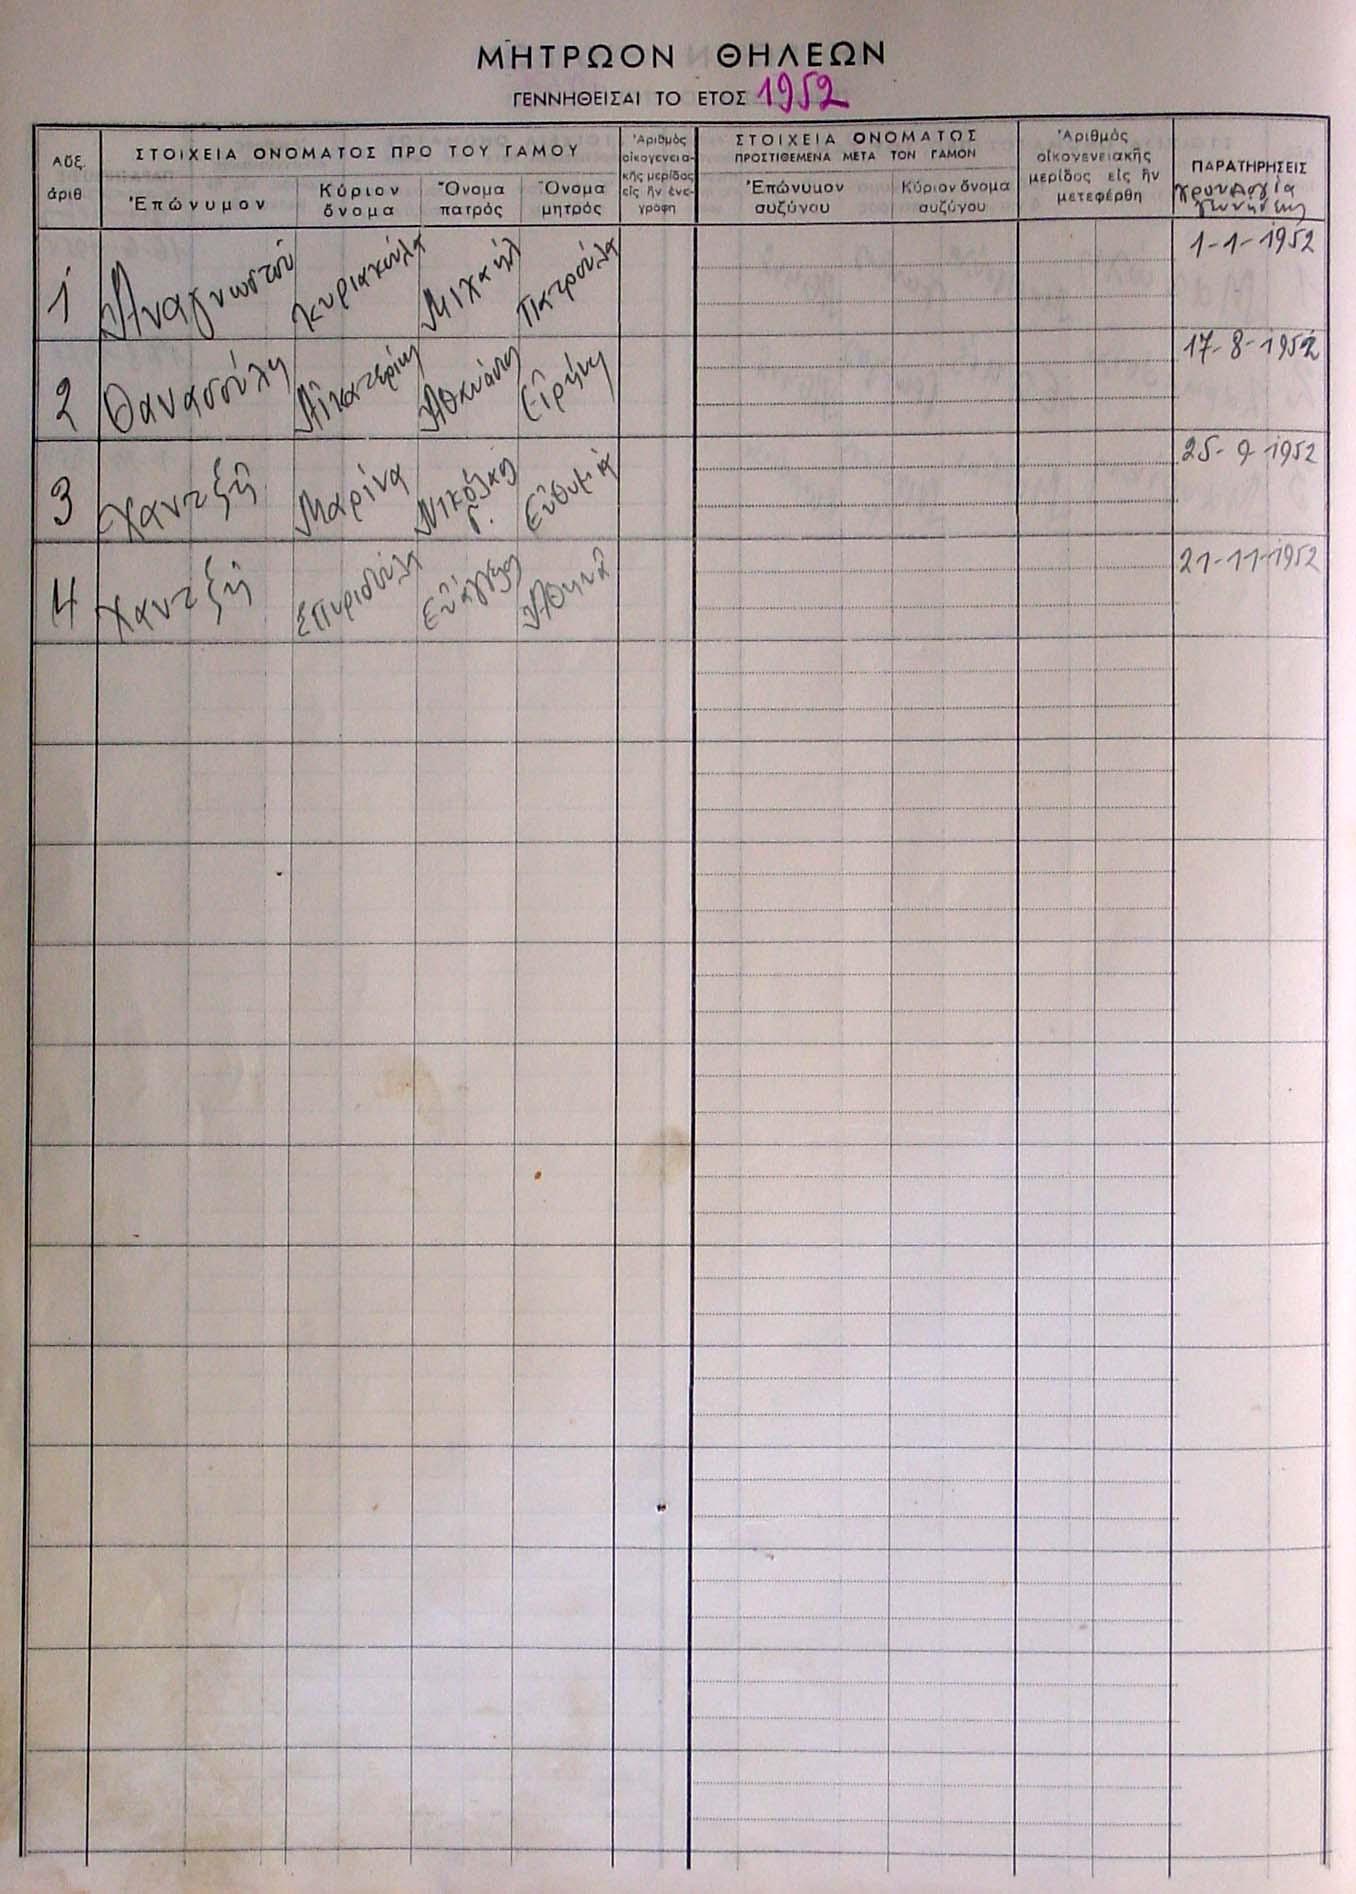 ΜΗΤΡΩΟΝ ΘΗΛΕΩΝ
ΓΕΝΝΗΘΕΙΣΑΙ ΤΟ ΕΤΟΣ 1952
Αὔξ. ἀριθ
ΣΤΟΙΧΕΙΑ ΟΝΟΜΑΤΟΣ ΠΡΟ ΤΟΥ ΓΑΜΟΥ
Ἐπώνυμον
Κύριον ὄνομα
Ὄνομα πατρός
Ὄνομα μητρός
Ἀριθμὸς οἰκογενεια-
κῆς μερίδος
εἰς ἣν ἐνε-
γράφη
ΣΤΟΙΧΕΙΑ ΟΝΟΜΑΤΟΣ
ΠΡΟΣΤΙΘΕΜΕΝΑ ΜΕΤΑ ΤΟΝ ΓΑΜΟΝ
Ἐπώνυμον συζύγου
Κύριον ὄνομα συζύγου
Ἀριθμὸς
οἰκογενειακῆς
μερίδος εἰς ἣν
μετεφέρθη
ΠΑΡΑΤΗΡΗΣΕΙΣ
χρονολογία
γεννήσεως
1 Ἀναγνωστοῦ Κυριακούλα Μιχαήλ Πατρούλα 1-1-1952
2 Θανασούλη Αἰκατερίνη Ἀθανάσιος Εἰρήνη 17-8-1952
3 Χαντζῆ Μαρίνα Νικόλαος Γ. Εὐθυμία 25-9-1952
4 Χαντζῆ Σπυριδούλα Εὐάγγελος Ἀθηνᾶ 21-11-1952